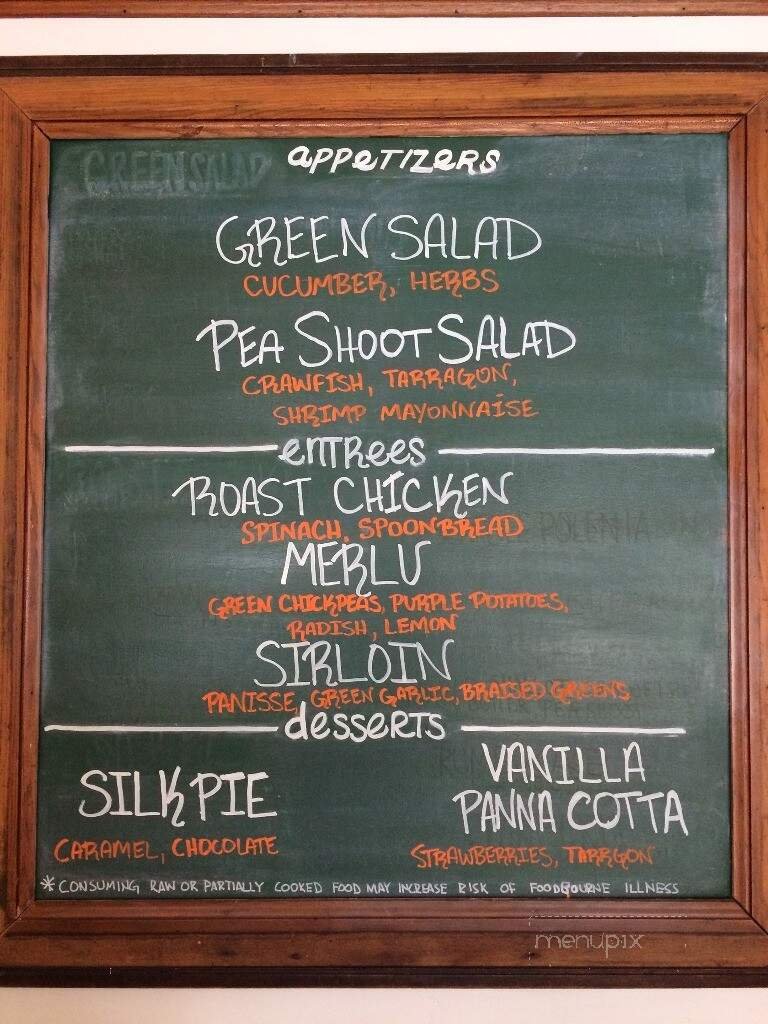 GREEN SALAD
appetizers
GREEN SALAD
CUCUMBER, HERBS
PEA SHOOT SALAD
CRAWFISH, TARRAGON,
SHRIMP MAYONNAISE
entrees
ROAST CHICKEN
SPINACH, SPOONBREAD
POLENTA
MERLU
GREEN CHICKPEAS, PURPLE POTATOES,
RADISH, LEMON
SIRLOIN
PANISSE, GREEN GARLIC, BRAISED GREENS
desserts
SILK PIE
CARAMEL, CHOCOLATE
VANILLA
PANNA COTTA
STRAWBERRIES, TARRGON
* CONSUMING RAW OR PARTIALLY COOKED FOOD MAY INCREASE RISK OF FOODBOURNE ILLNESS
menupix